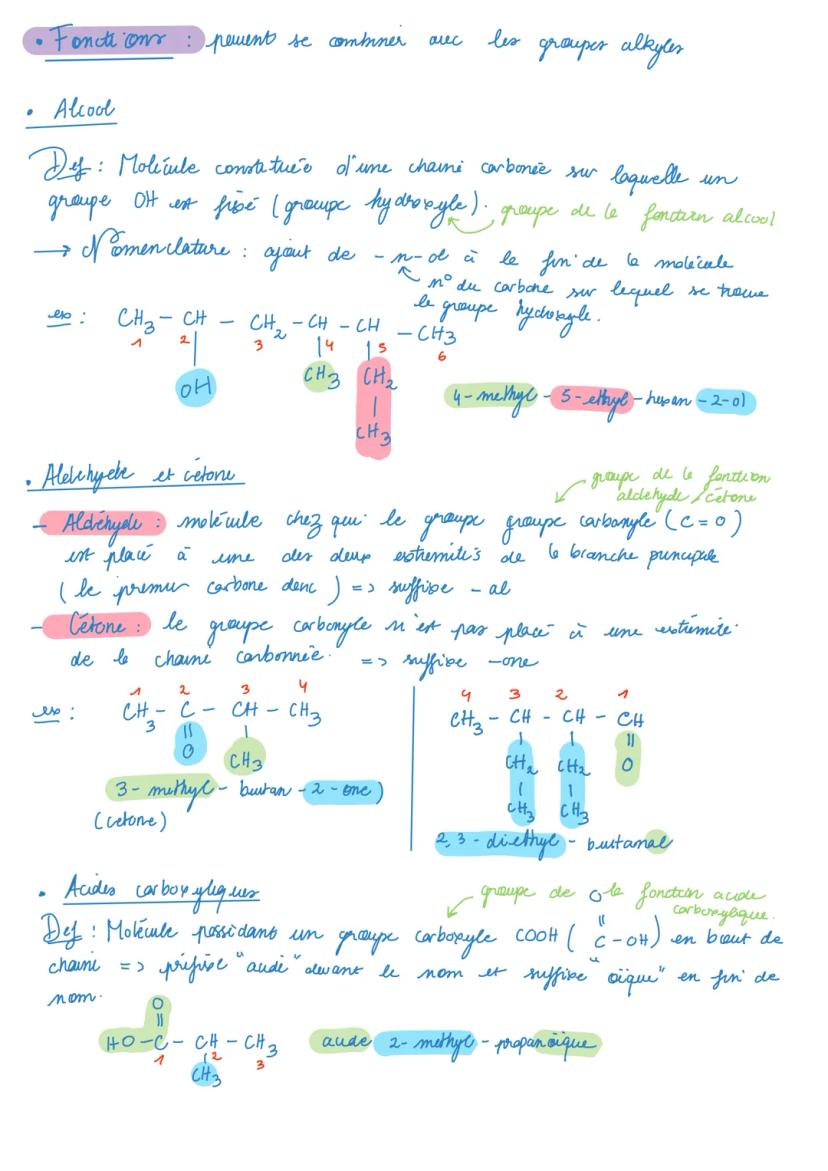 • Fonctions : peuvent se combiner avec les groupes alkyles
• Alcool
Def : Molécule constituée d'une chaine carbonée sur laquelle un
groupe OH est fixé (groupe hydroxyle). groupe de la fonction alcool
→ Nomenclature : ajout de -n-ol à la fin de la molécule
n° du carbone sur lequel se trouve
le groupe hydroxyle.
ex : CH3 - CH - CH2 - CH - CH - CH3
1 2 3 4 5 6
OH CH3 CH2
CH3
4-methyl - 5-ethyl - hexan - 2-ol
• Aldehyde et cétone
groupe de la fonction
aldehyde / cétone
- Aldéhyde : molécule chez qui le groupe groupe carbonyle (C=O)
est placé à une des deux extremités de la branche principale
(le premier carbone donc) => suffixe -al
- Cétone : le groupe carbonyle n'est pas placé à une extrémité
de la chaine carbonnée. => suffixe -one
1 2 3 4
ex : CH3 - C - CH - CH3
O CH3
3-methyl - butan - 2-one)
(cetone)
4 3 2 1
CH3 - CH - CH - CH
CH2 CH2 O
CH3 CH3
2,3-diethyl - butanal
• Acides carboxyliques
groupe de la fonction acide
carboxylique.
O
Def : Molécule possédant un groupe carboxyle COOH (C-OH) en bout de
chaine => préfixe "acide" devant le nom et suffixe "oïque" en fin de
nom.
O
HO-C - CH - CH3
1 2 3
CH3
acide 2-methyl - propanoïque